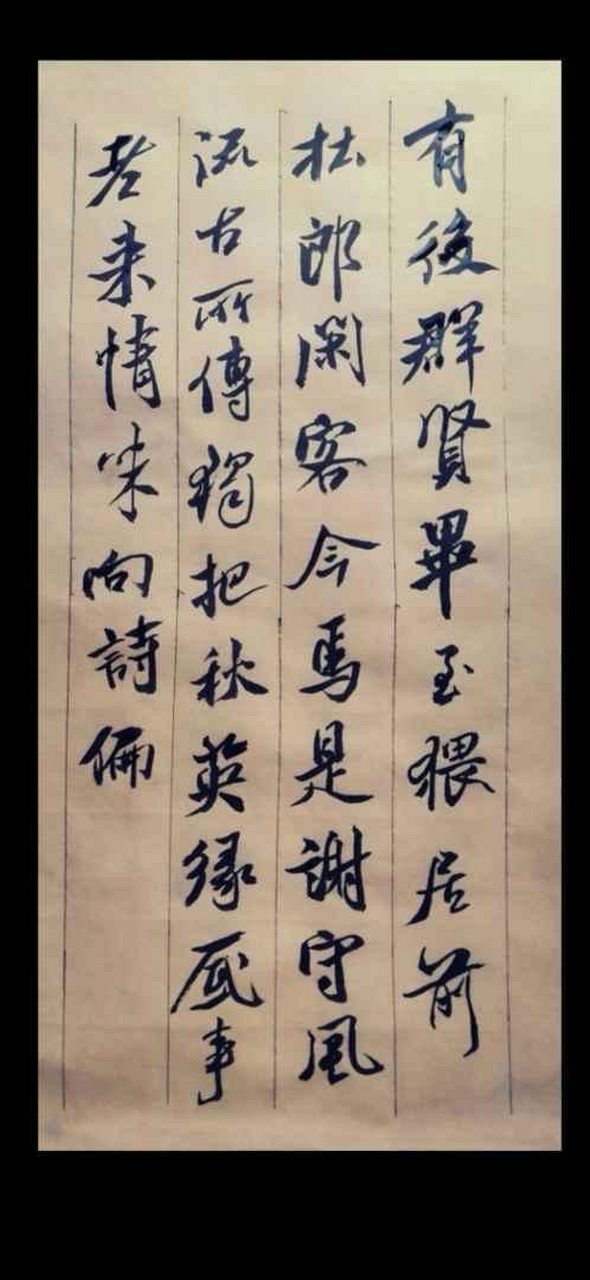 有後群賢畢至猥居前
杜郎閑客今焉是謝守風
流古所傳獨把秋英緣底事
老来情味向詩偏